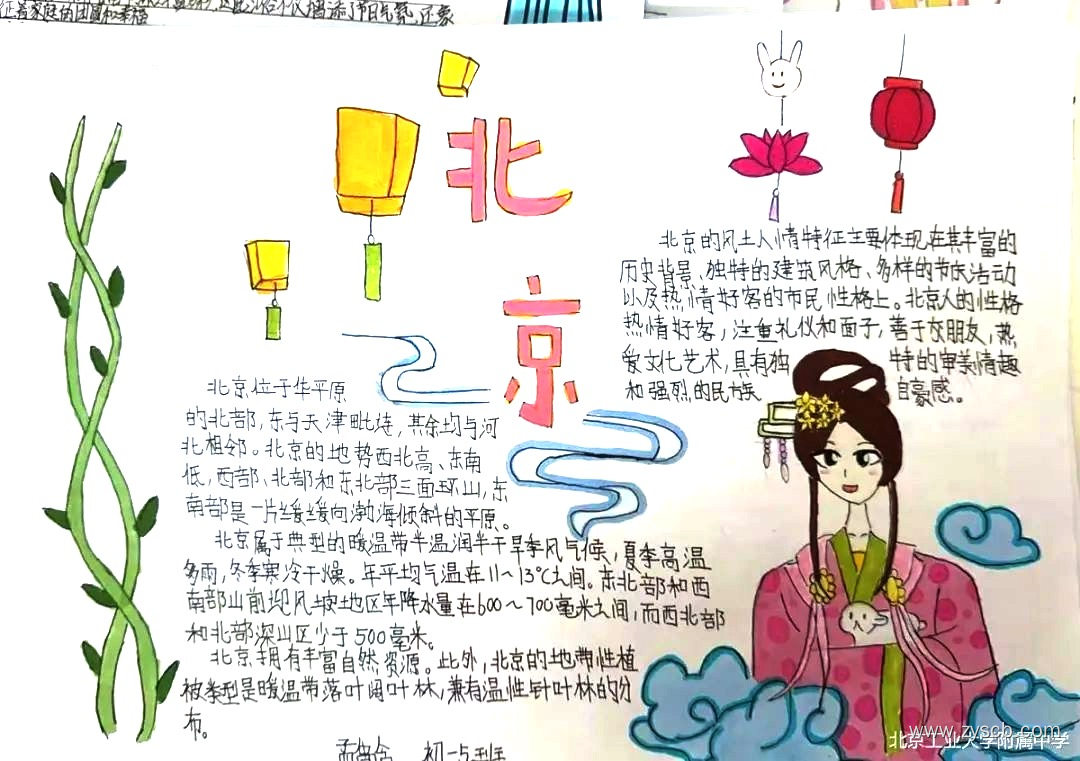 征着家庭的团圆和幸福
北
京
北京的风土人情特征主要体现在其丰富的
历史背景、独特的建筑风格、多样的节庆活动
以及热情好客的市民性格上。北京人的性格
热情好客,注重礼仪和面子,善于交朋友,热
爱文化艺术,具有独特的审美情趣
和强烈的民族自豪感。
北京位于华平原
的北部,东与天津毗连,其余均与河
北相邻。北京的地势西北高、东南
低,西部、北部和东北部三面环山,东
南部是一片缓缓向渤海倾斜的平原。
北京属于典型的暖温带半温润半干旱季风气候,夏季高温
多雨,冬季寒冷干燥。年平均气温在11~13℃之间。东北部和西
南部山前迎风坡地区年降水量在600~700毫米之间,而西北部
和北部深山区少于500毫米。
北京拥有丰富自然资源。此外,北京的地带性植
被类型是暖温带落叶阔叶林,兼有温性针叶林的分
布。
初一5班
www.zyscb.com
北京工业大学附属中学